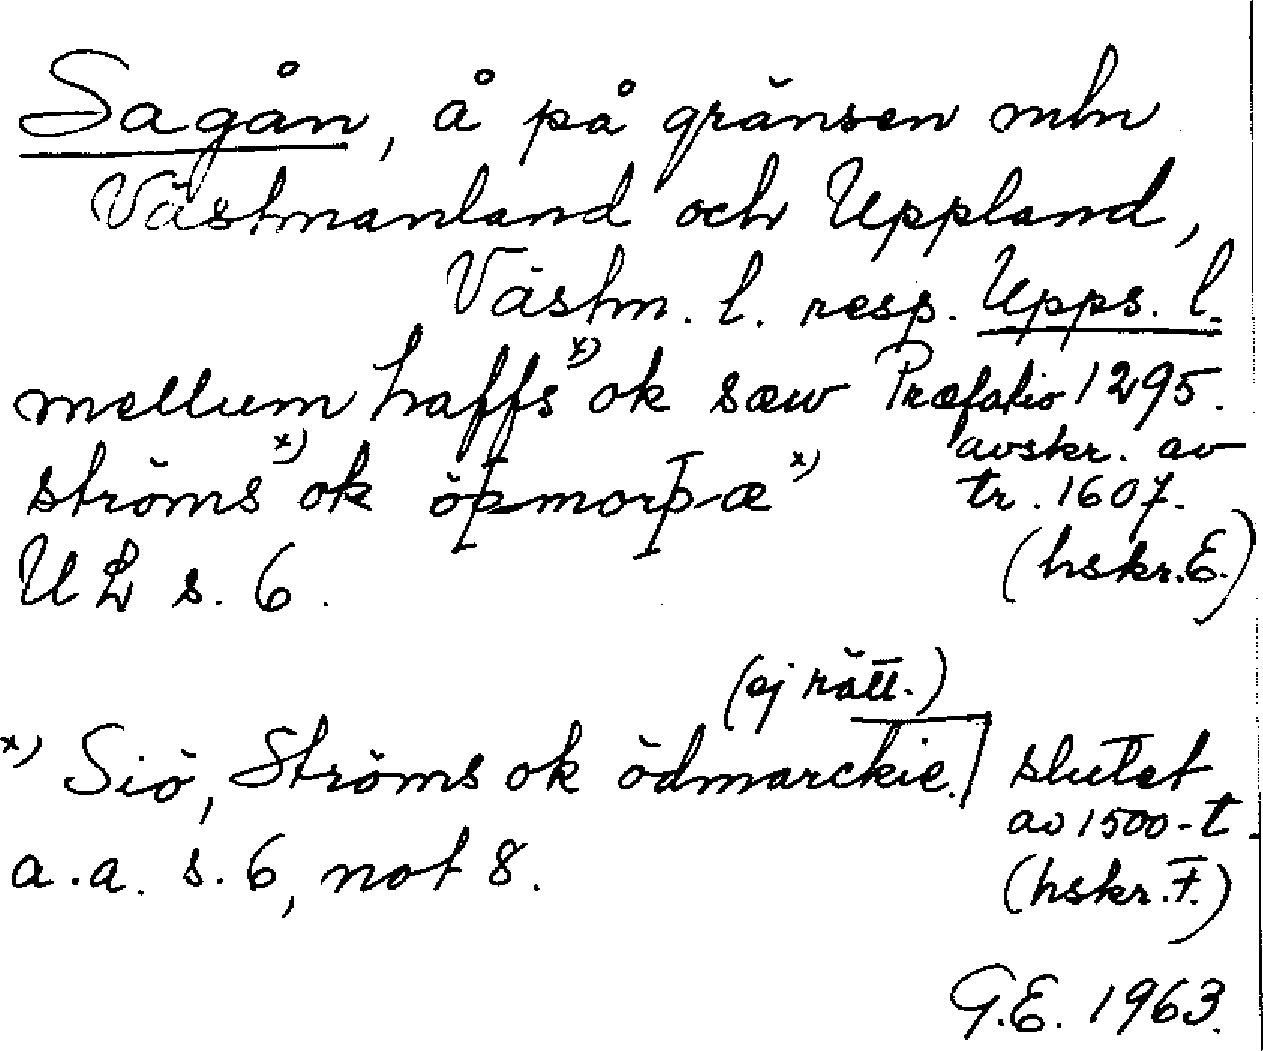 Sagån, å på gränsen mln
Västmanland och Uppland,
Västm. l. resp. Upps. l.
mellum haffs x) ok sæw
ströms x) ok öþmorþæ x)
UL s. 6.
Præfatio 1295.
avskr. av
tr. 1607.
(hskr. E.)
(ej rätt.)
x) Siö, Ströms ok ödmarckie.]
a.a. s. 6, not 8.
slutet
av 1500-t.
(hskr. F.)
G.E. 1963.